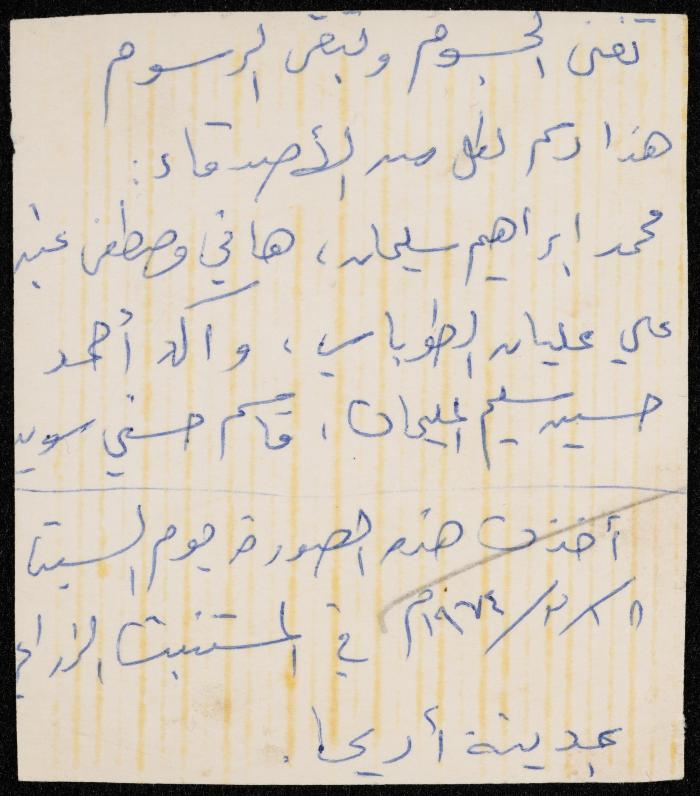 تفنى الجسوم وتبقى الرسوم
هذا رسم لكل من الأصدقاء :
محمد ابراهيم سليمان ، هاني مصطفى
علي عليان الطوباسي ، وائل أحمد
حسين سليم ، قاسم حسني سويد
أخذت هذه الصورة يوم السبت
في المستنبت الزراعي
بمدينة أريحا .